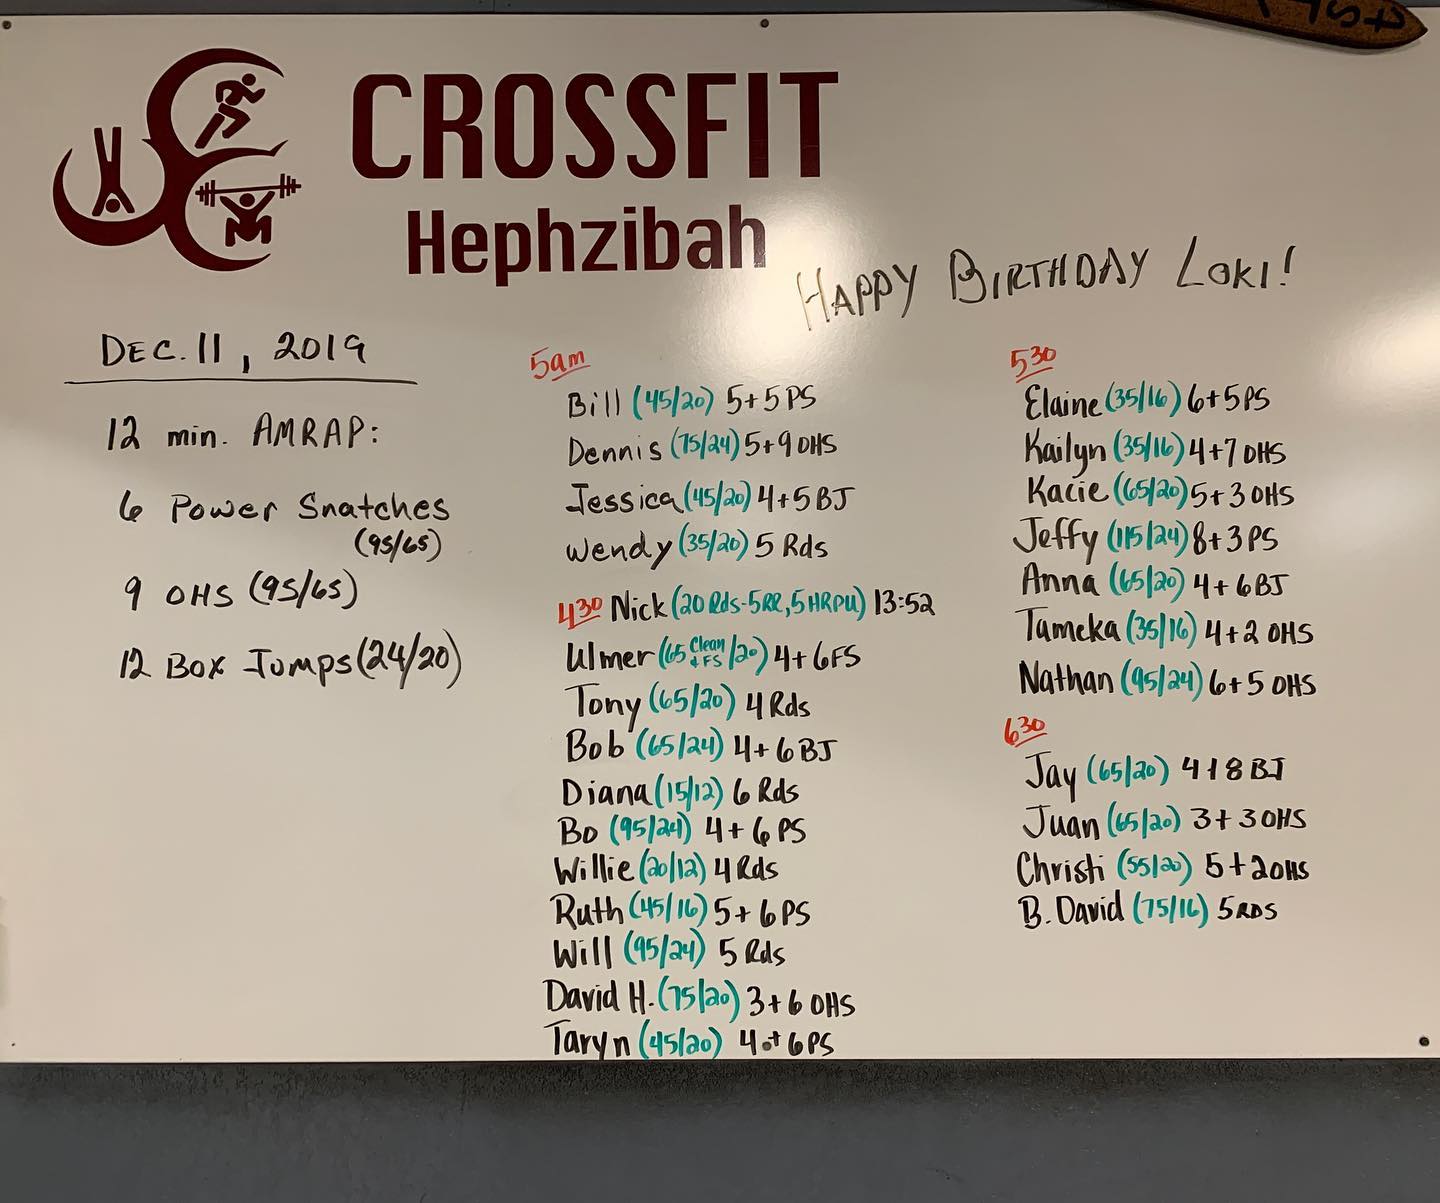 CROSSFIT
Hephzibah
HAPPY BIRTHDAY LOKI!
DEC. 11, 2019
12 min. AMRAP:
6 Power Snatches
(95/65)
9 OHS (95/65)
12 Box Jumps (24/20)
5am
Bill (45/20) 5+5 PS
Dennis (75/24) 5+9 OHS
Jessica (45/20) 4+5 BJ
Wendy (35/20) 5 Rds
430 Nick (20 Rds-5RR, 5HRPU) 13:52
Ulmer (65 Clean + FS /20) 4+6FS
Tony (65/20) 4 Rds
Bob (65/24) 4+6 BJ
Diana (15/12) 6 Rds
Bo (95/24) 4+6 PS
Willie (20/12) 4 Rds
Ruth (45/16) 5+6 PS
Will (95/24) 5 Rds
David H. (75/20) 3+6 OHS
Taryn (45/20) 4+6 PS
530
Elaine (35/16) 6+5 PS
Kailyn (35/16) 4+7 OHS
Kacie (65/20) 5+3 OHS
Jeffy (115/24) 8+3 PS
Anna (65/20) 4+6 BJ
Tameka (35/16) 4+2 OHS
Nathan (95/24) 6+5 OHS
630
Jay (65/20) 4+8 BJ
Juan (65/20) 3+3 OHS
Christi (55/20) 5+2 OHS
B. David (75/16) 5 RDS